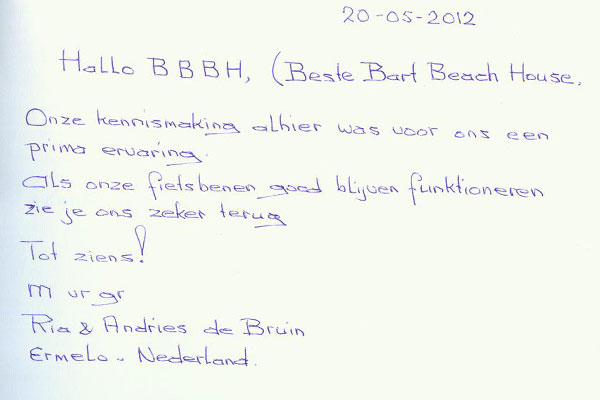 20-05-2012
Hallo BBBH, (Beste Bart Beach House,
Onze kennismaking alhier was voor ons een
prima ervaring.
Als onze fietsbenen goed blijven funktioneren
zie je ons zeker terug
Tot ziens!
m vr gr
Ria & Andries de Bruin
Ermelo - Nederland.